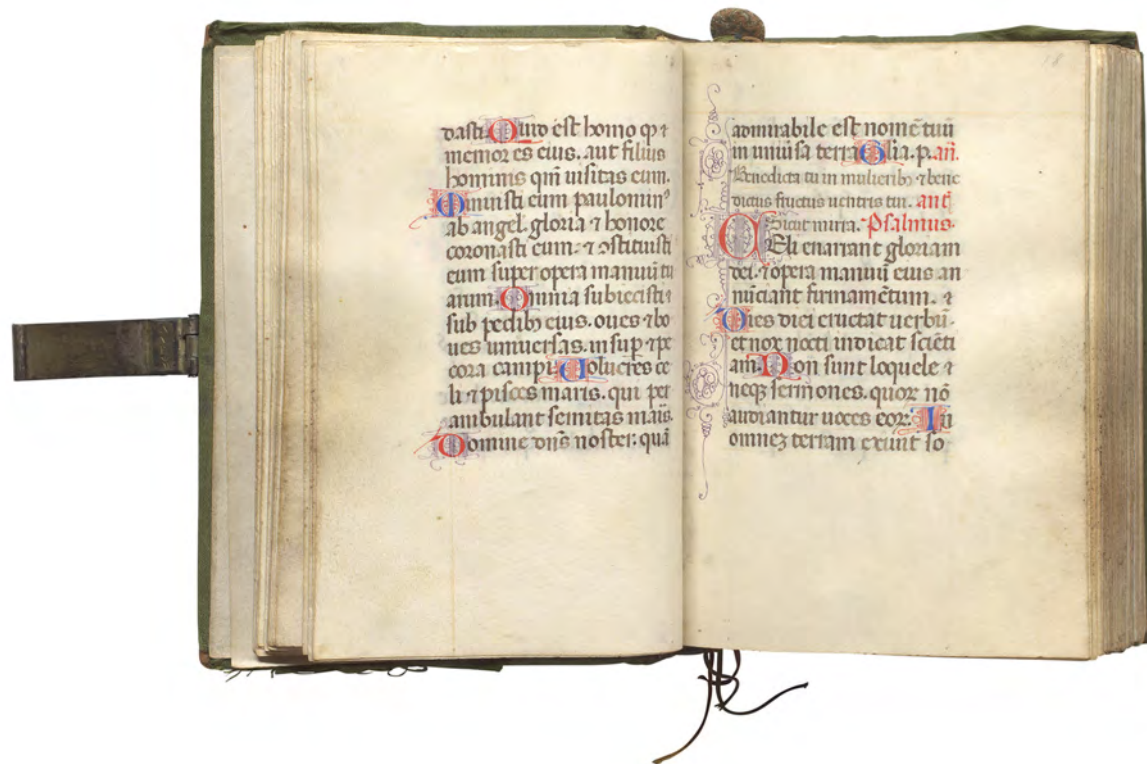 dasti. Quid est homo qꝫ ⁊
memor es eius. aut filius
hominis qm̄ uisitas eum.
Minuisti eum paulominꝰ
ab angel. gloria ⁊ honore
coronasti eum. ⁊ ↄstituisti
eum super opera manuū tu
arum. Omnia subiecisti ⁊
sub pedibꝫ eius. oues ⁊ bo
ues uniuersas. insup̄ ⁊ pe
cora campi. Uolucres ce
li ⁊ pisces maris. qui per
ambulant semitas maīs.
Domine dn̄s noster. quā
18
admirabile est nomē tuū
in uniūsa terra. Glia. p. an̄.
Benedicta tu in mulieribꝫ ⁊ bene
dictus fructus uentris tui. ant̄
Sicut mirra. Psalmus.
Celi enarrant gloriam
dei. ⁊ opera manuū eius an
nūciant firmamētum. ⁊
Dies diei eructat uerbū.
et nox nocti indicat sciēti
am. Non sunt loquele ⁊
neqꝫ sermones. quor nō
audiantur uoces eor. In
omneꝫ terram exiuit so